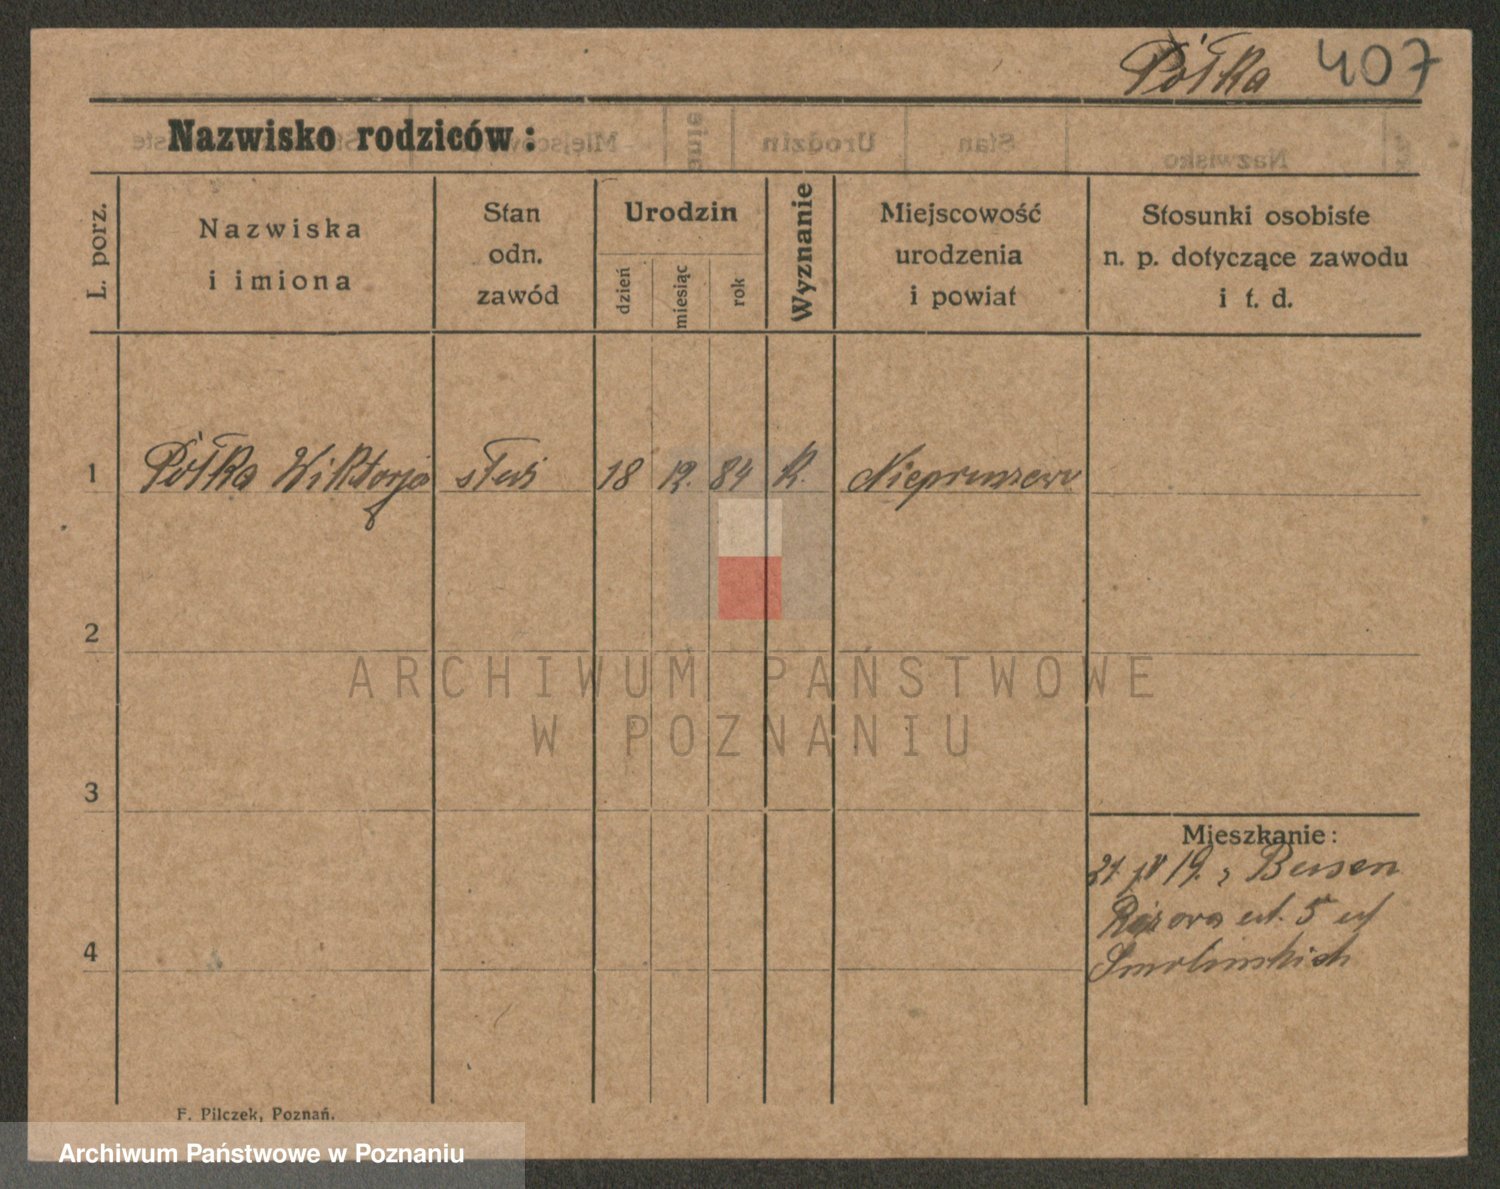 Półka 407
Nazwisko rodziców:
L. porz.
Nazwiska
i imiona
Stan
odn.
zawód
Urodzin
dzień
miesiąc
rok
Wyznanie
Miejscowość
urodzenia
i powiat
Stosunki osobiste
n. p. dotyczące zawodu
i t. d.
1 Półka Wiktorja 18 12. 84 K. Niepruszewo
2
ARCHIWUM PAŃSTWOWE
W POZNANIU
3
Mieszkanie:
19. z Busen
5
4 Smolinskich
F. Pilczek, Poznań.
Archiwum Państwowe w Poznaniu